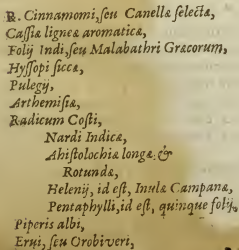 R. Cinnamomi, seu Canellæ selectæ,
Cassiæ ligneæ aromaticæ,
Folij Indi, seu Malabathri Græcorum,
Hyssopi siccæ,
Pulegij,
Arthemisiæ,
Radicum Costi,
Nardi Indicæ,
Ahistolochiæ longæ &
Rotundæ,
Helenij, id est, Inulæ Campanæ,
Pentaphylli, id est, quinque folij,
Piperis albi,
Erui, seu Orobi veri,